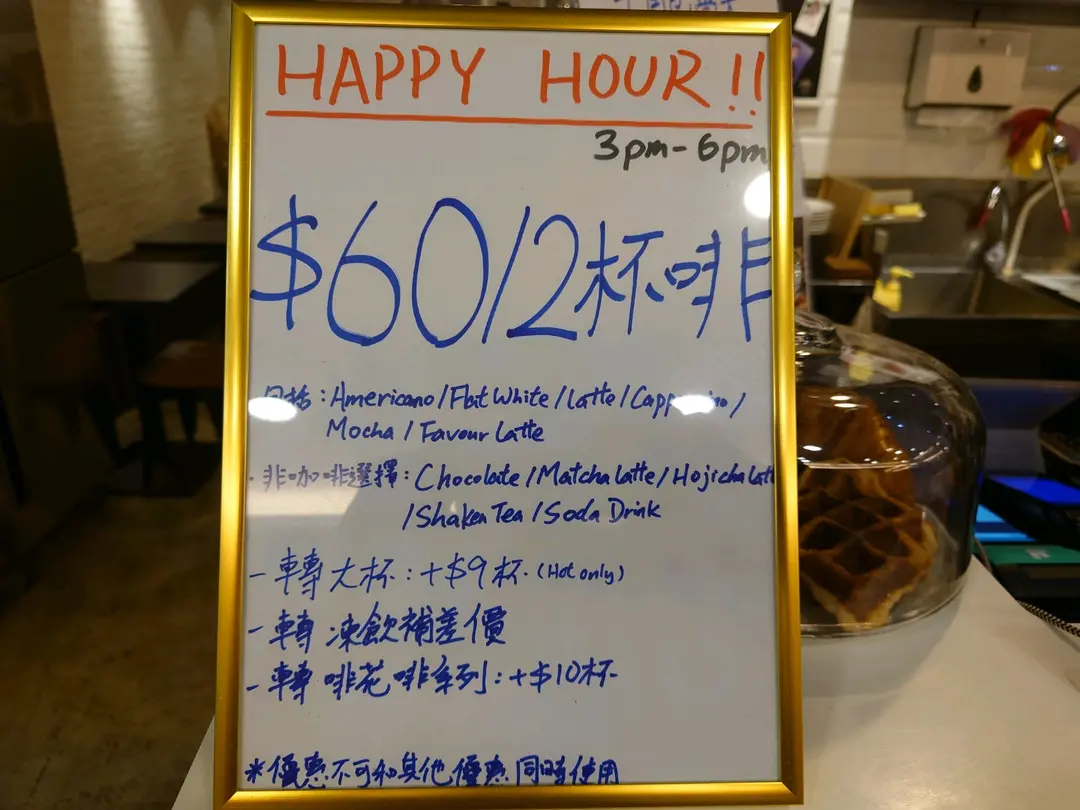 HAPPY HOUR!!
3pm-6pm
$60/2杯啡
包括:Americano/Flat White/Latte/Cappuccino/
Mocha/Favour Latte
·非咖啡選擇:Chocolate/Matcha Latte/Hojicha Latt
/Shaken Tea/Soda Drink
-轉大杯:+$9杯·(Hot only)
-轉凍飲補差價
-轉啡花啡系列:+$10杯
*優惠不可和其他優惠同時使用